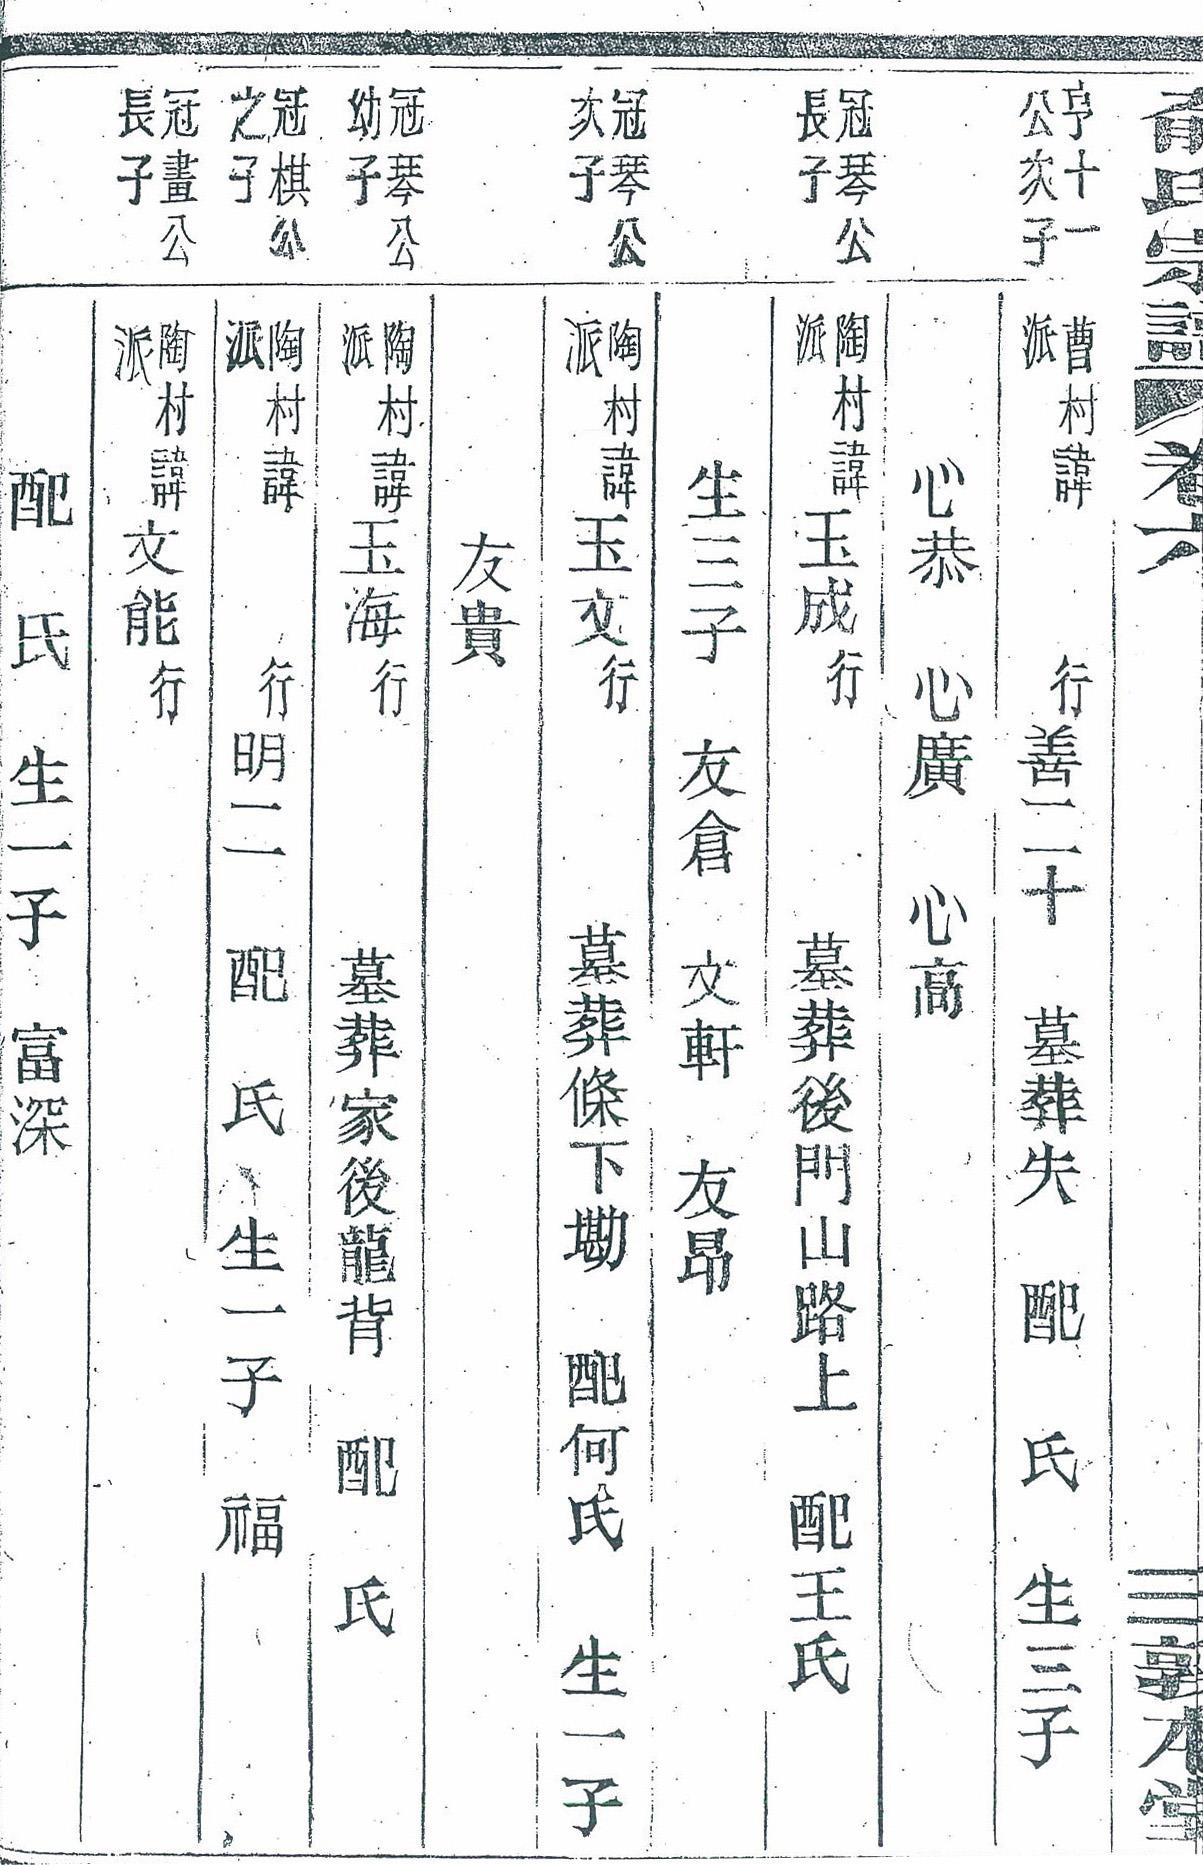 氏宗譜 卷六 三 敦本堂
亨十一公次子
曹村派諱 行善二十 墓葬失 配 氏 生三子
心恭 心廣 心高
冠琴公長子
陶村派諱玉成行 墓葬後門山路上 配王氏
生三子 友倉 文軒 友昂
冠琴公次子
陶村派諱玉文行 墓葬條下墈 配何氏 生一子
友貴
冠琴公幼子
陶村派諱玉海行 墓葬家後龍背 配 氏
冠棋公之子
陶村派諱 行明二 配 氏 生一子 福
冠畫公長子
陶村派諱文能行
配 氏 生一子 富深